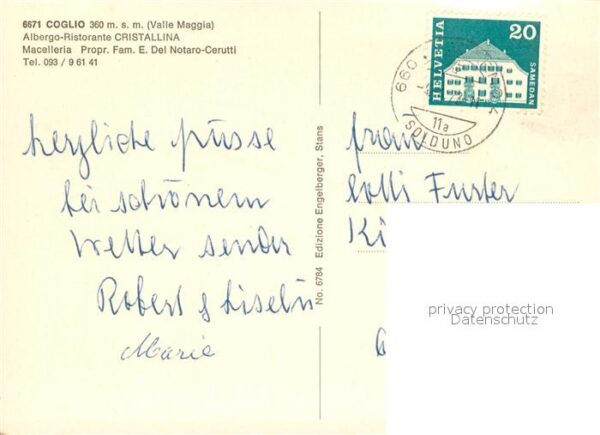 6671 COGLIO 360 m. s. m. (Valle Maggia)
Albergo-Ristorante CRISTALLINA
Macelleria Propr. Fam. E. Del Notaro-Cerutti
Tel. 093 / 9 61 41
herzliche grüsse
bei schönem
Wetter sendet
Robert & Liselis
Marie
No. 6784 Edizione Engelberger, Stans
HELVETIA
20
SAMEDAN
660
11a
SOLDUNO
frau
Lotti Furter
Ki
privacy protection
Datenschutz